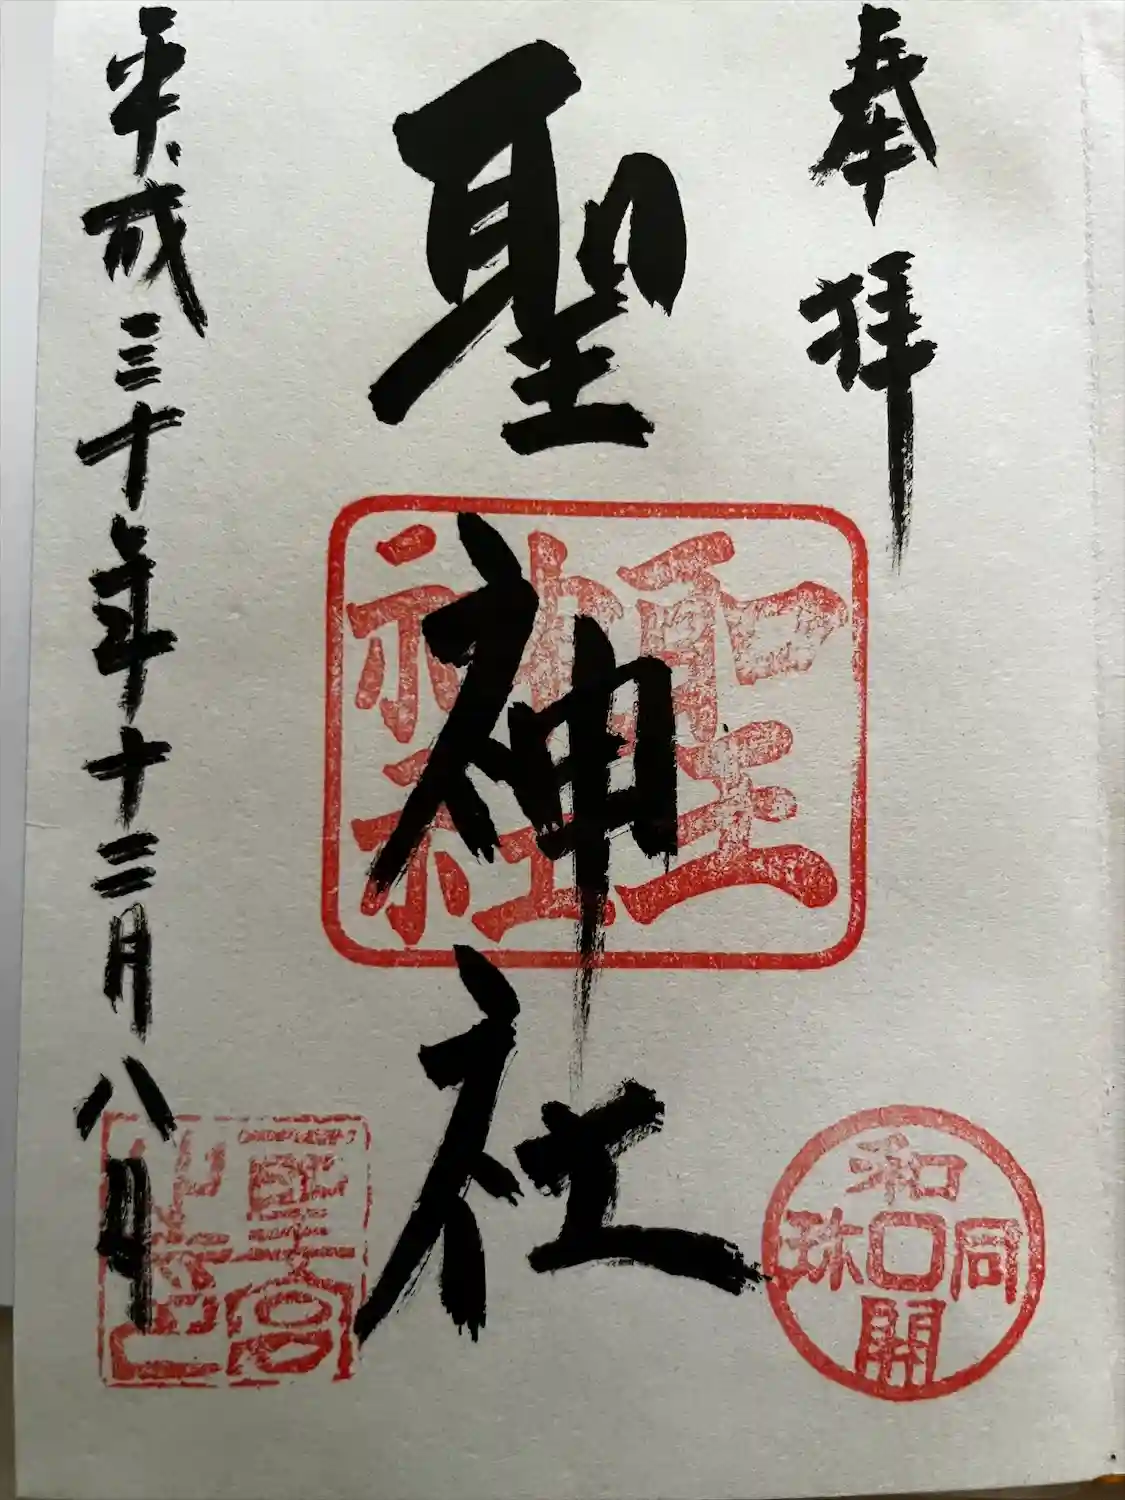 奉拝
聖神社
平成三十年十二月八日
聖
神社
和同開珎